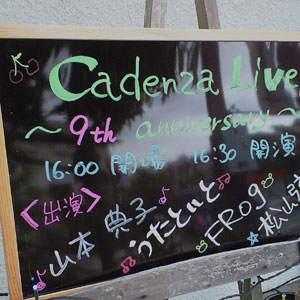 Cadenza Live
～9th anniversary～
16:00 開場 16:30 開演
＜出演＞
山本 典子
うたとぴと
FROg
松山